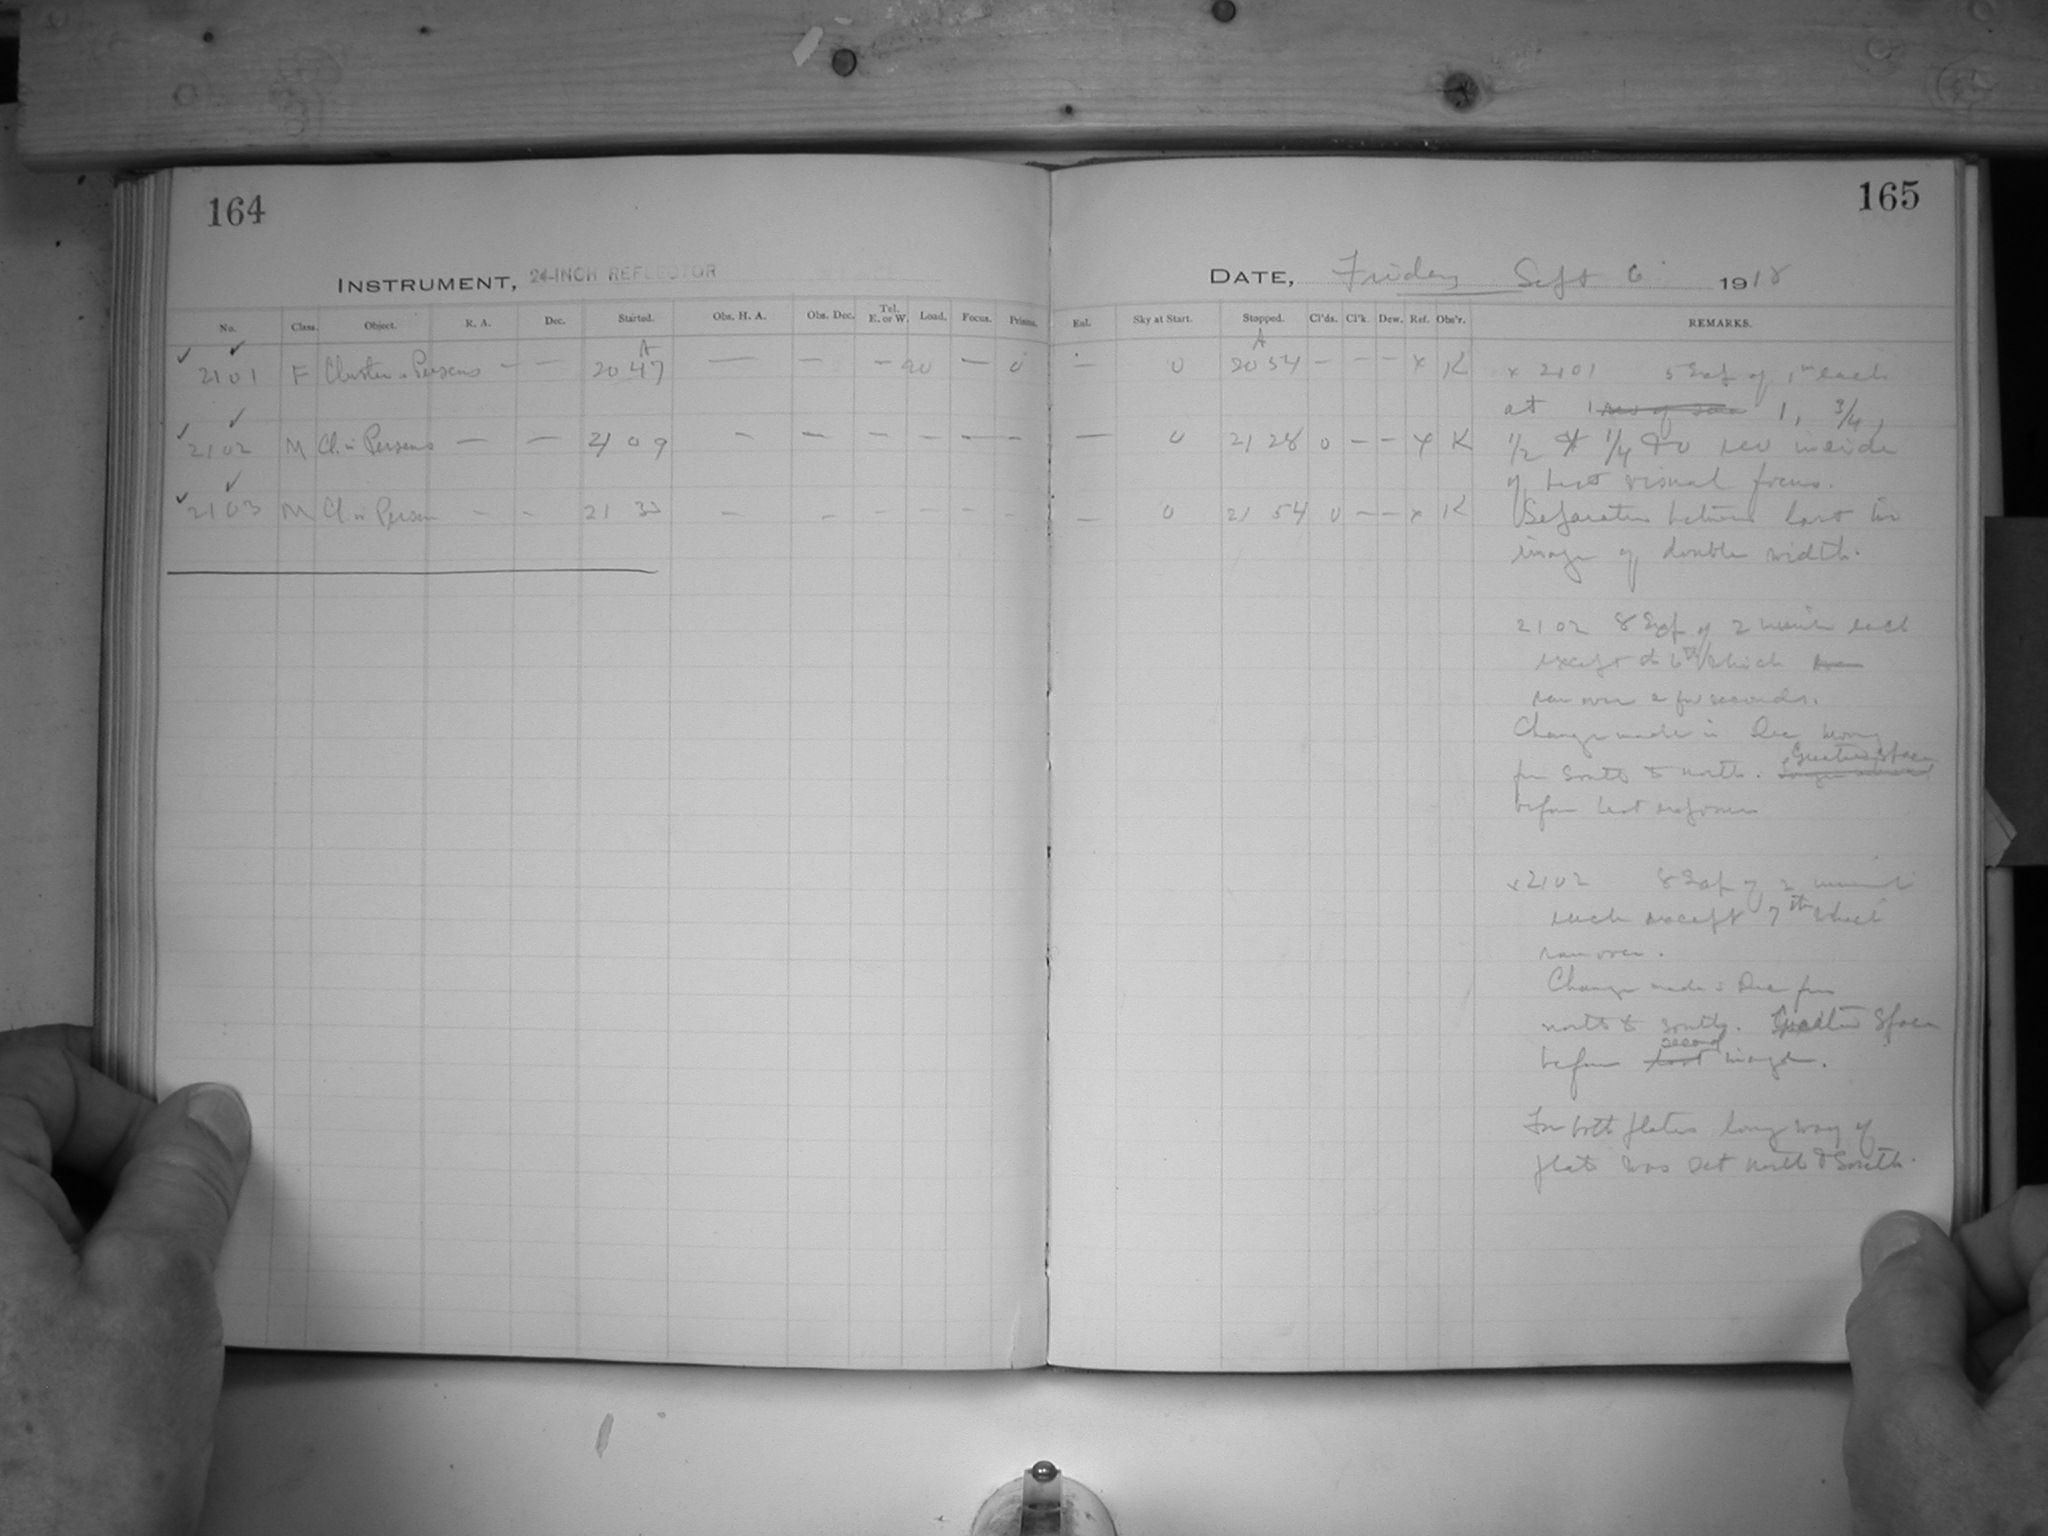 164
INSTRUMENT, 24-INCH REFLECTOR
No. Class. Object. R. A. Dec. Started. Obs. H. A. Obs. Dec. Tel. E. or W. Load. Focus. Prisms.
A
2101 F Cluster in Perseus — — 20 47 — — — 20 — 0
2102 M Cl. in Perseus — — 21 09 — — — — — —
2103 M Cl in Perseus - - 21 — — — — — —
165
DATE, Friday Sept 6 1918
Enl. Sky at Start. Stopped. Cl'ds. Cl'k. Dew. Ref. Obs'r. REMARKS.
A
— 0 20 54 — — — x K
— 0 21 28 0 — — x K
— 0 21 54 0 — — x K
x 2101 5 Exp of 1m each
at 1 1, 3/4,
1/2 1/4 rev inside
of best visual focus.
Separation between last two
image of double width.
2102 8 Exp of 2 minutes each
except 6th which
ran over a few seconds.
Change made in Dec
from South to north. Greater space
before last exposure
x 2102 8 Exp of 2 minutes
each except 7th which
ran over.
Change made in Dec from
north to south. Greater space
before second image.
For both plates long way of
plate was set north & South.